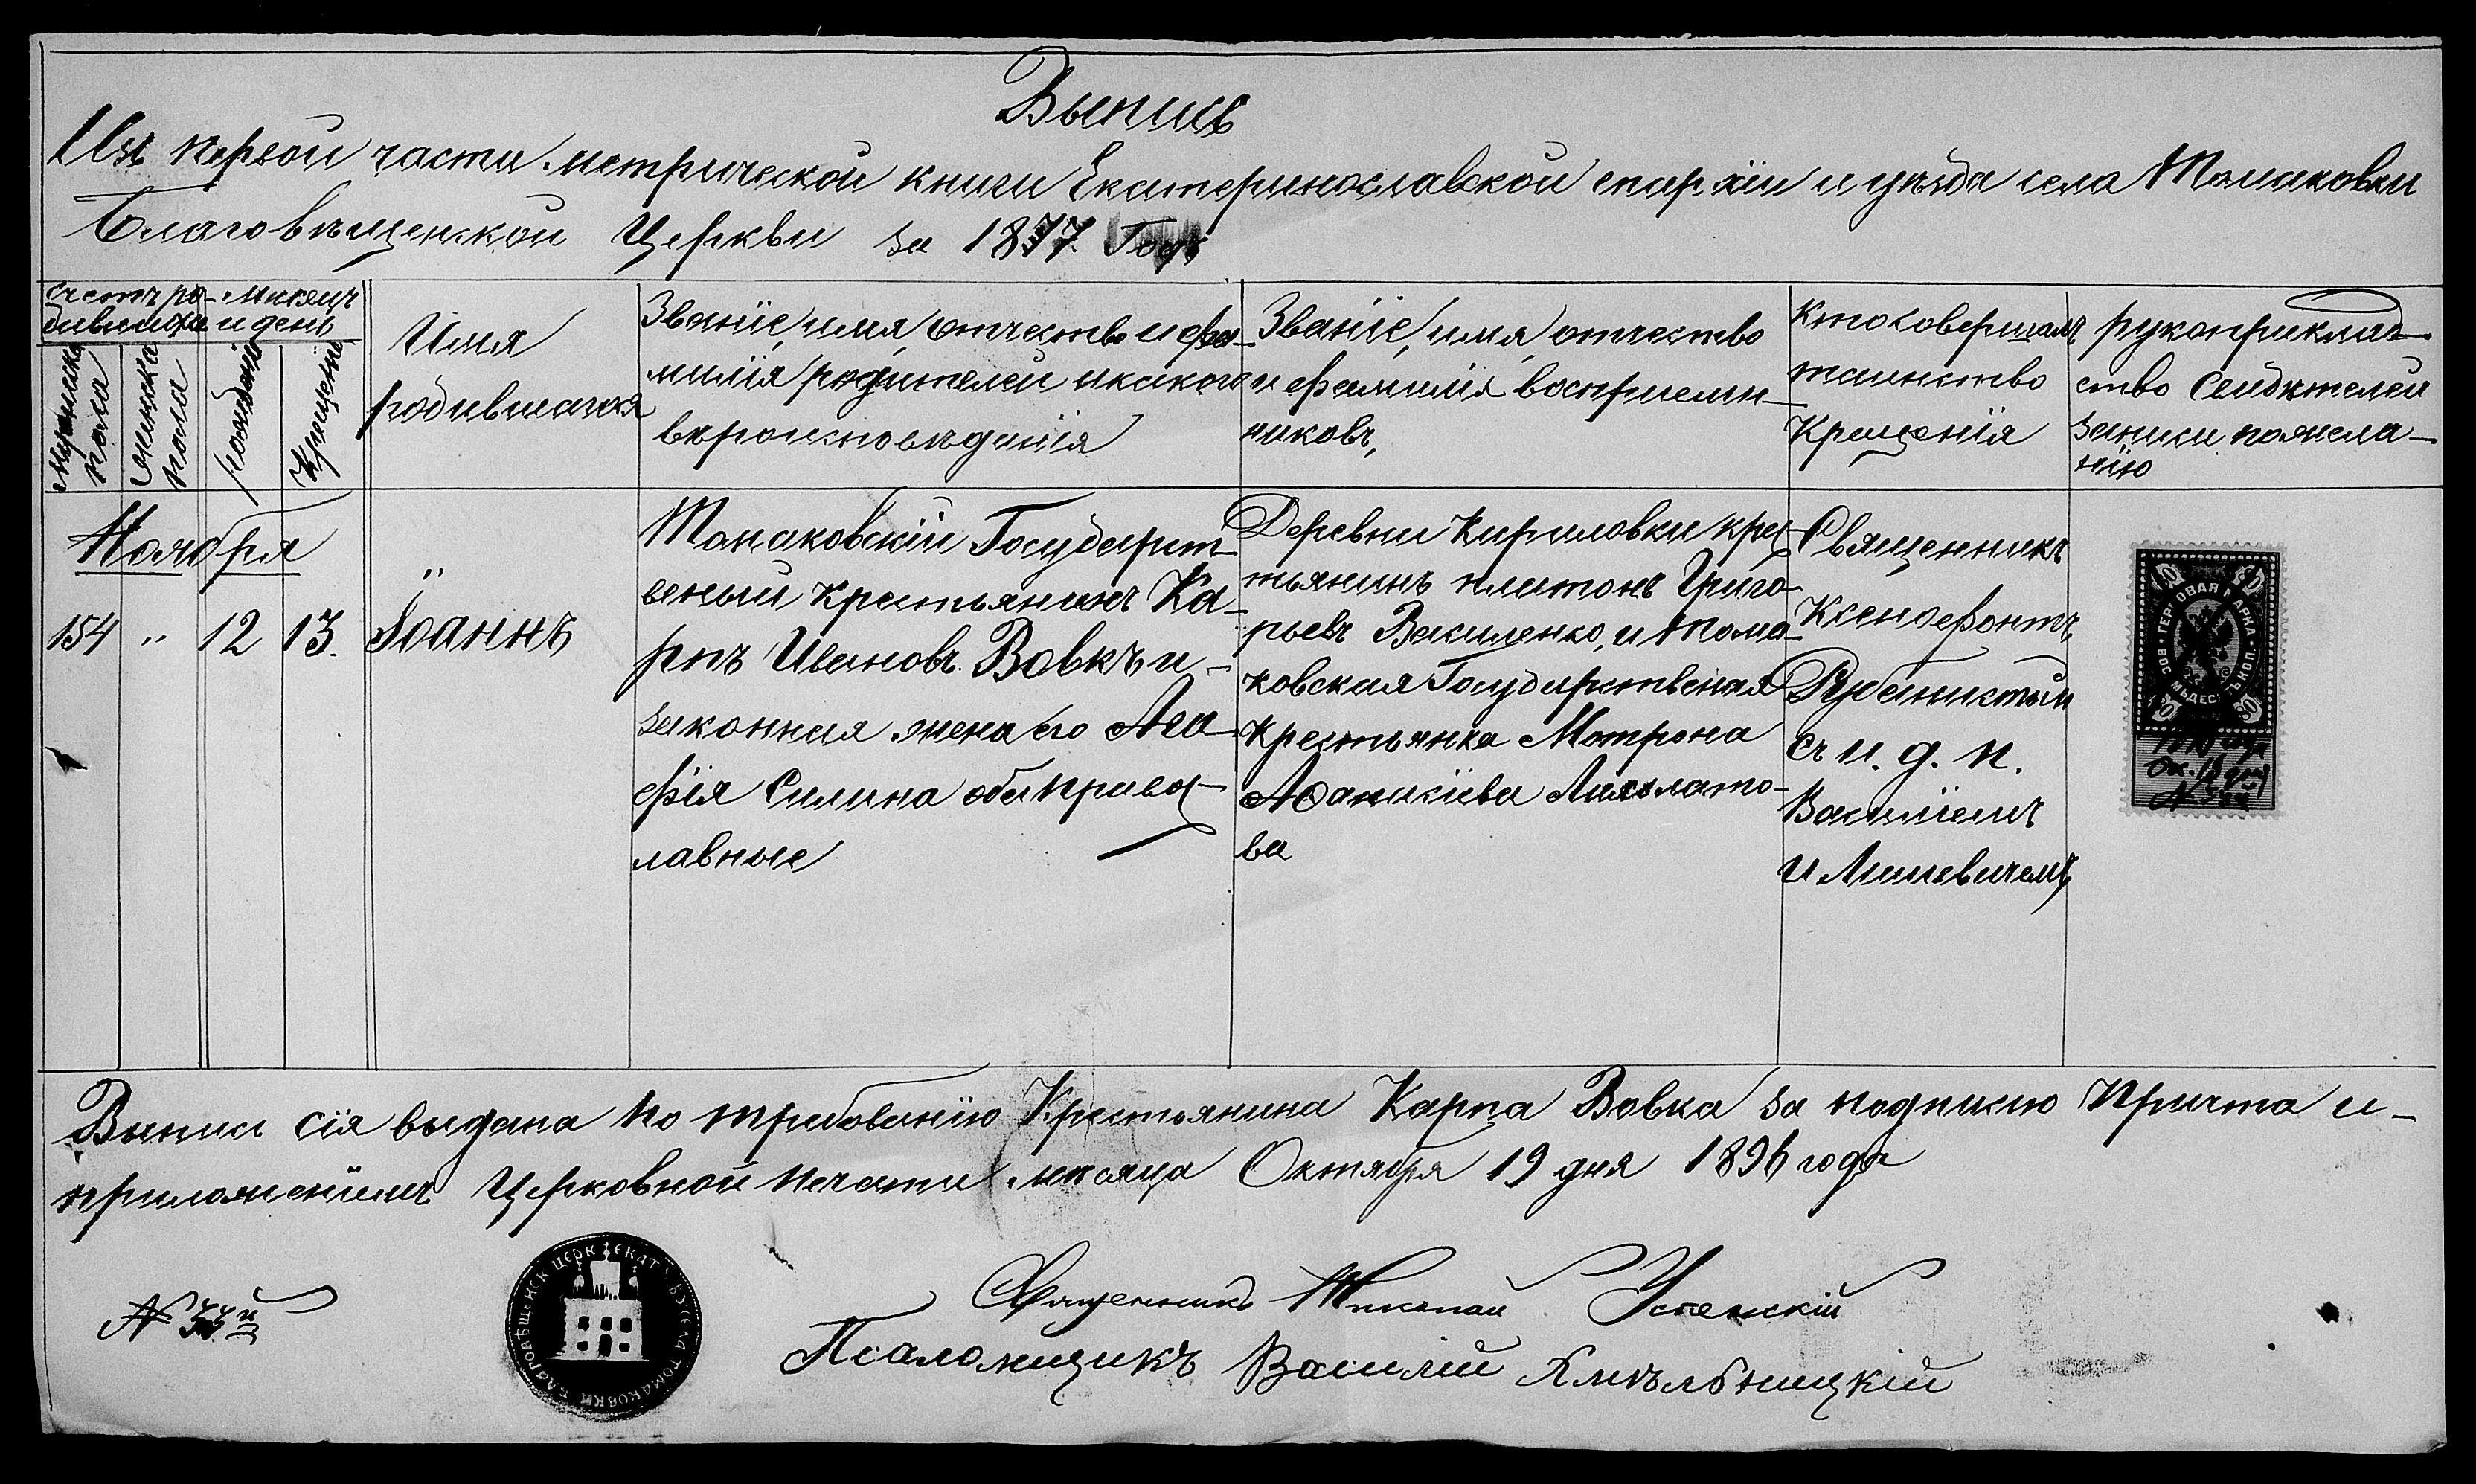 Выпись
Изъ первой части метрической книги Екатеринославской епархiи и уѣзда села Томаковки
Благовѣщенской Церкви за 1877 Годъ
счетъ ро-
дившихся
мѣсяцъ
и день
мужеска
пола
женска
пола
рожденiя
Крещенiя
Имя
родившагося
Званiе, имя, отчество и фа-
милiя родителей и какого
вѣроисповѣданiя
Званiе, имя, отчество
и фамилiя воспрiемн-
иковъ,
Кто совершалъ
таинство
Крещенiя
рукоприклад-
ство Свидѣтелей
записи пожела-
нiю
Ноября
154 " 12 13.
Iоаннъ
Томаковскiй Государст-
веный крестьянинъ Ка-
рпъ Ивановъ Вовкъ и-
законная жена его Ага-
фiя Силина оба правос-
лавные
Деревни Кириловки крес-
тьянинъ платонъ Григо-
рьевъ Василенко, и Тома-
ковская Государственая
Крестьянка Мотрона
Афанасiева
ва
Священникъ
Ксенофонтъ
съ и. д. п.
Василiемъ
ТЕРГОВАЯ МАРКА
ВОСЕМЬДЕСЯТЪ КОП.
80 80
80 80
Выпись сiя выдана по требованiю Крестьянина Карпа Вовка за подписью Причта и-
приложенiемъ Церковной печати мѣсяца Октября 19 дня 1896 года
№ 33й
БЛАГОВѢЩЕНСК ЦЕРК ЕКАТ У СЕЛА ТОМАКОВКИ
Священникъ Николай Успенскiй
Псаломщикъ Василiй Хмѣльницкiй